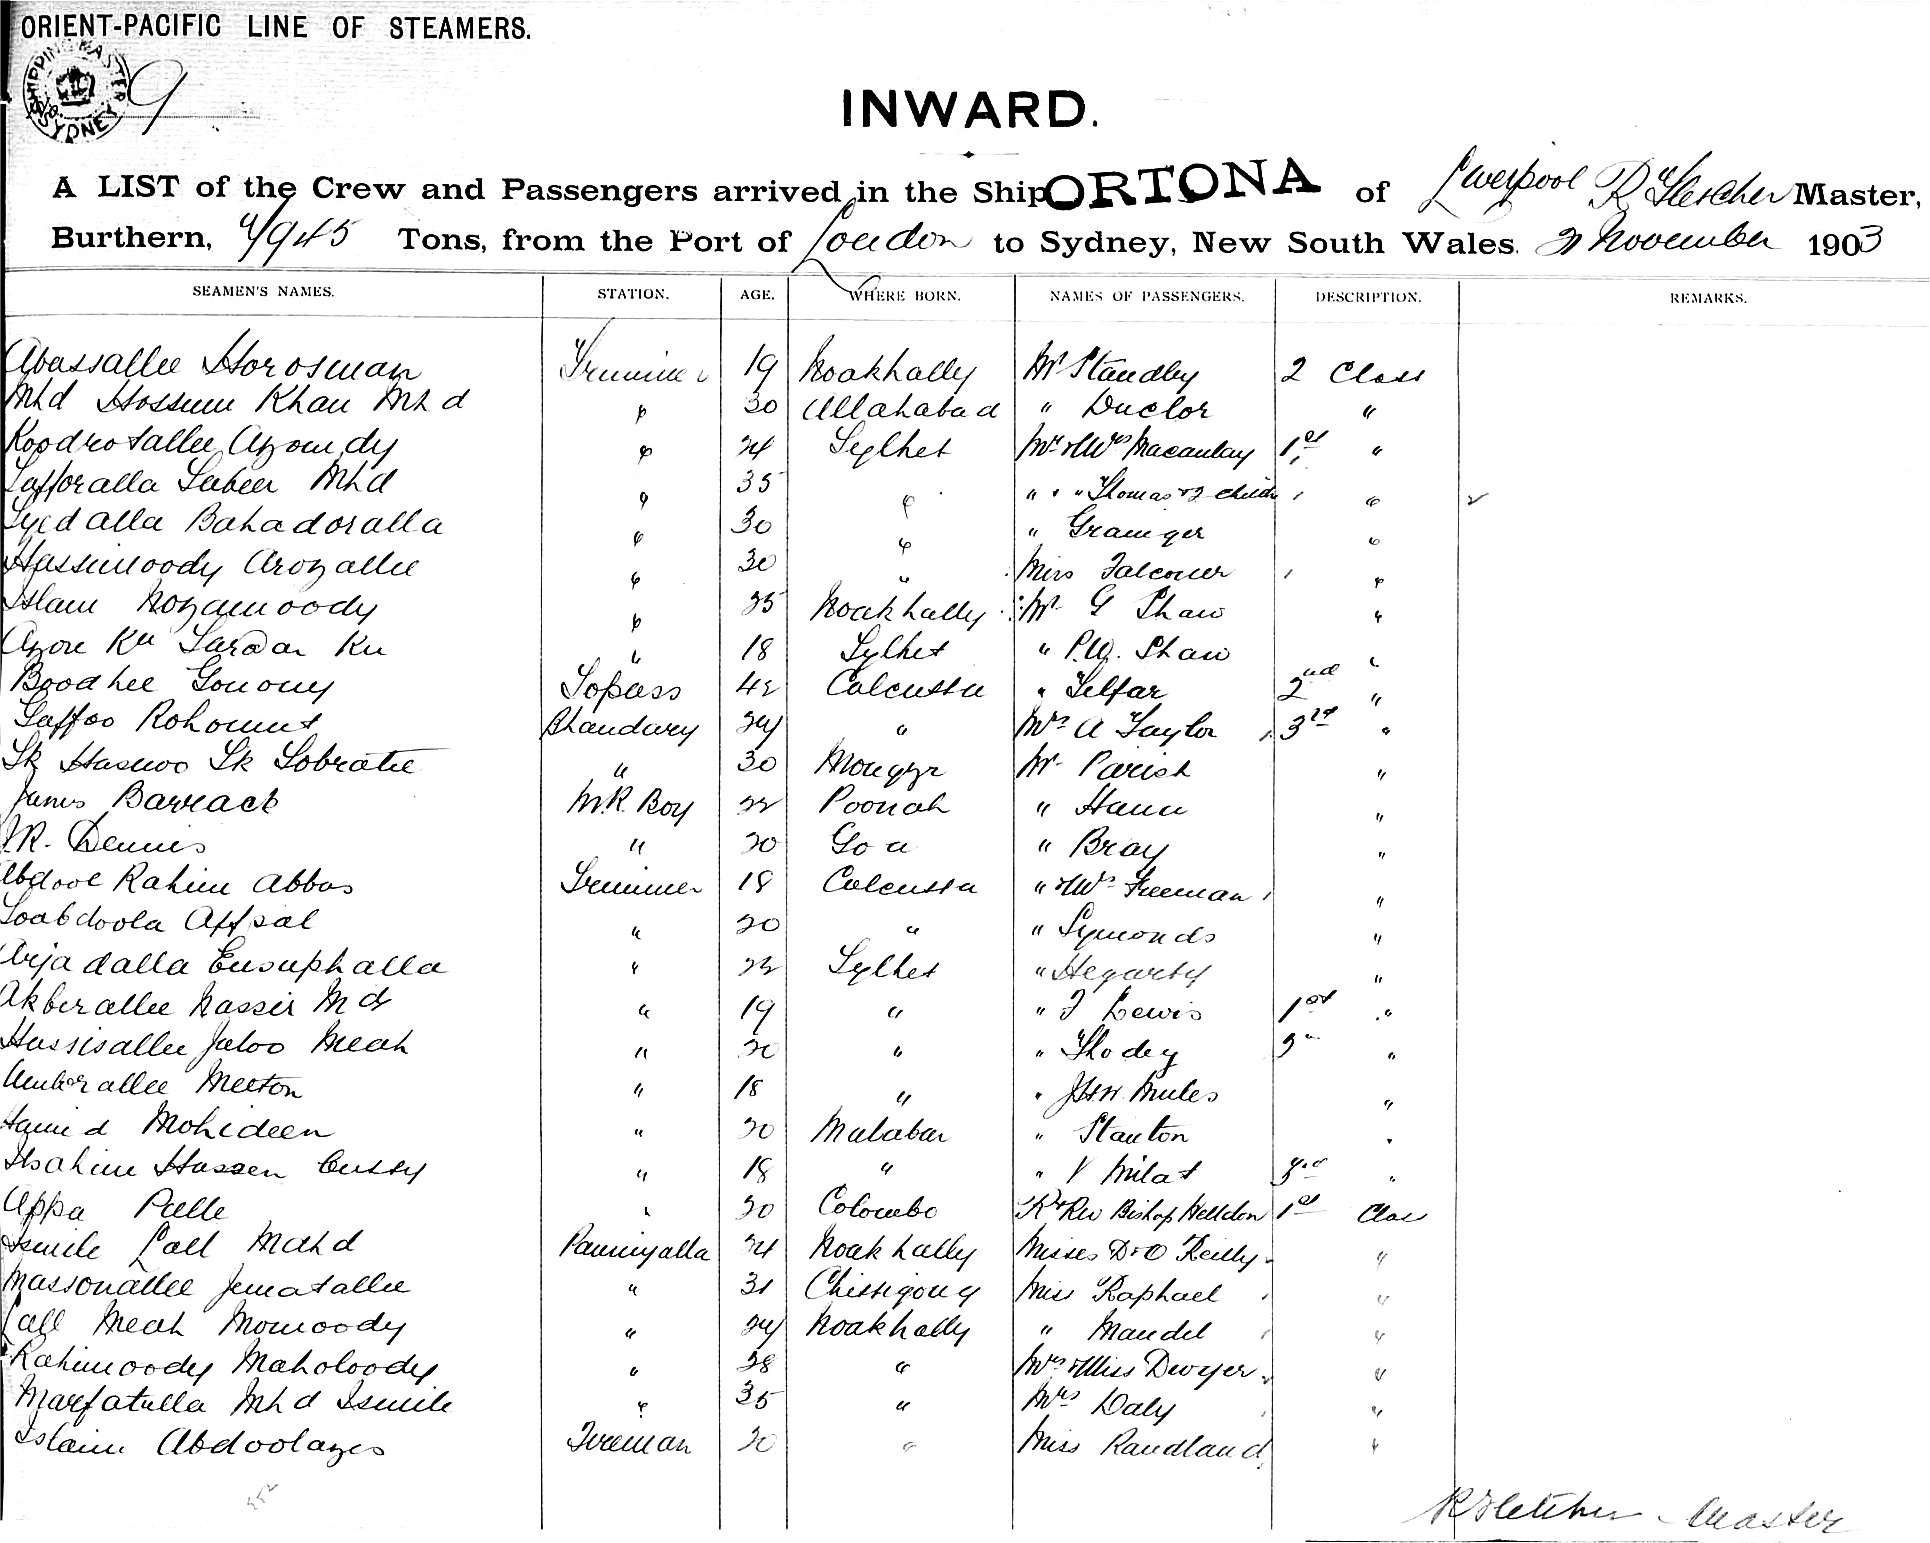 ORIENT-PACIFIC LINE OF STEAMERS.
SHIPPING MASTER SYDNEY
9
INWARD.
A LIST of the Crew and Passengers arrived in the Ship ORTONA of Liverpool R Fletcher Master,
Burthern, 4/945 Tons, from the Port of London to Sydney, New South Wales. November 1903
SEAMEN'S NAMES. STATION. AGE. WHERE BORN. NAMES OF PASSENGERS. DESCRIPTION. REMARKS.
Abassallee Horosman Trimmer 19 Noakhally Mr Standby 2 Class
Mhd Hossein Khan Mhd " 30 Allahabad " Ductor "
Koodrotallee Azomdy " 24 Sylhet Mr & Mrs Macaulay 1st "
Safforalla Sabeer Mhd " 35 " " " " Thomas & 2 childn "
Syed alla Bahadoralla " 30 " " Grainger "
Hassimoody Arozallee " 30 " Miss Falconer "
Islam Nozamoody " 25 Noakhally Mr G Shaw "
Azore Ku Sardar Ku " 18 Sylhet " P.G. Shaw "
Boodhee Gonony Topass 42 Calcutta " Telfar 2nd "
Gaffoo Rohomut Bhandary 24 " Mrs A Taylor 3rd "
Sk Hasnoo Sk Sobratie " 30 Mongyr Mr Parish "
James Barrack M.R. Boy 22 Poonah " Hann "
J.R. Dennis " 20 Goa " Bray "
Abdool Rahim Abbas Trimmer 18 Calcutta " & Mrs Freeman "
Goabdoola Affsal " 20 " " Symonds "
Arjadalla Eusuphalla " 22 Sylhet " Hegarty "
Akberallee Nassir Md " 19 " " F Lewis 1st "
Hassisallee Jaloo Meah " 20 " " Thodey "
Amberallee Meeton " 18 " " J.H.W. Mules "
Hamid Mohideen " 20 Malabar " Stanton "
Ibrahim Hassen Cutty " 18 " " V Milat 3rd "
Appa Pulle " 20 Colombo Rt Rev Bishop 1st Class
Ismile Lall Mahd Panniyalla 24 Noakhally Misses D & O Reilly "
Massonallee Jematallee " 31 Chittigong Miss Raphael "
Lall Meah Momoody " 24 Noakhally " Mandel "
Rahimoody Maholoody " 28 " Mrs & Miss Dwyer "
Marfatulla Mhd Ismile " 35 " Mrs Daly "
Islam Abdoolazes Fireman 20 " Miss Randland "
R Fletcher - Master